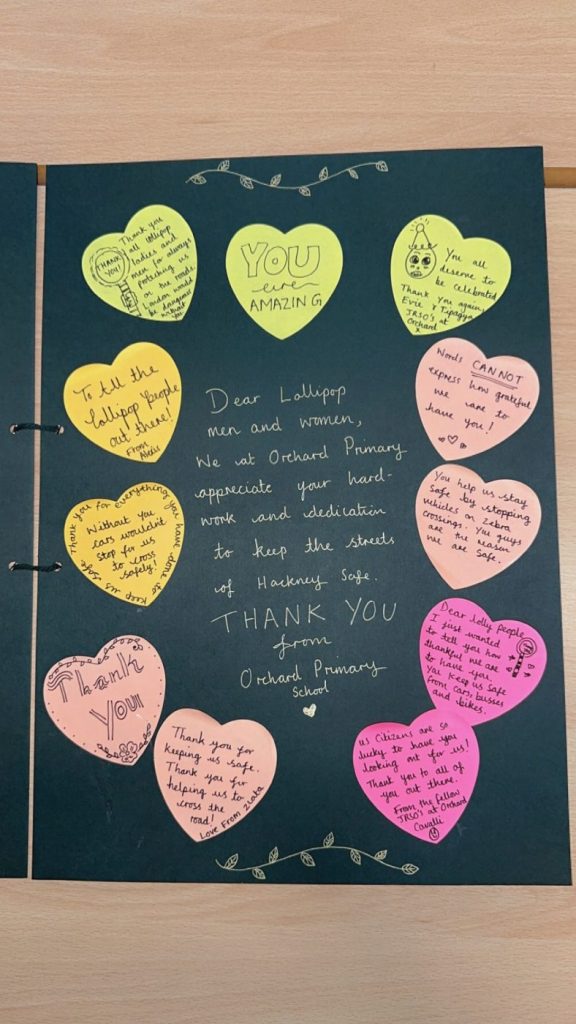 Thank you
all lollipop
ladies and
men for always
protecting us
on the roads.
London would
be dangerous
without
you
THANK
YOU!
YOU
are
AMAZING
You all
deserve to
be celebrated
Thank you again
Evie & Tipagya
JRSO's at
Orchard
x
To All the
lollipop People
out there!
From
Words CANNOT
express how grateful
we are to
have you!
Dear Lollipop
men and women,
We at Orchard Primary
appreciate your hard-
work and dedication
to keep the streets
of Hackney Safe.
THANK YOU
from
Orchard Primary
School
Thank you for everything you have done to keep us safe
Without you
cars wouldn't
stop for us
to cross
safely.
You help us stay
safe by stopping
vehicles on zebra
crossings. You guys
are the reason
we are safe.
Thank
you!
Dear lolly people
I just wanted
to tell you how
thankful we are
to have you.
You keep us safe
from cars, busses
and bikes.
Thank you for
keeping us safe.
Thank you for
helping us to
cross the
road!
Love From Zlata
us Citizens are so
lucky to have you
looking out for us!
Thank you to all of
you out there.
From, the fellow
JRSO's at Orchard
Cavalli